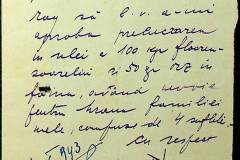 rog să b.v. a-mi
aproba prelucrarea
în ulei a 100 kgr floarea-
soarelui și 50 gr orz în
făină, având nevoie
pentru hrana familiei
mele, compuse de 4 suflete.
Cu respect
1943